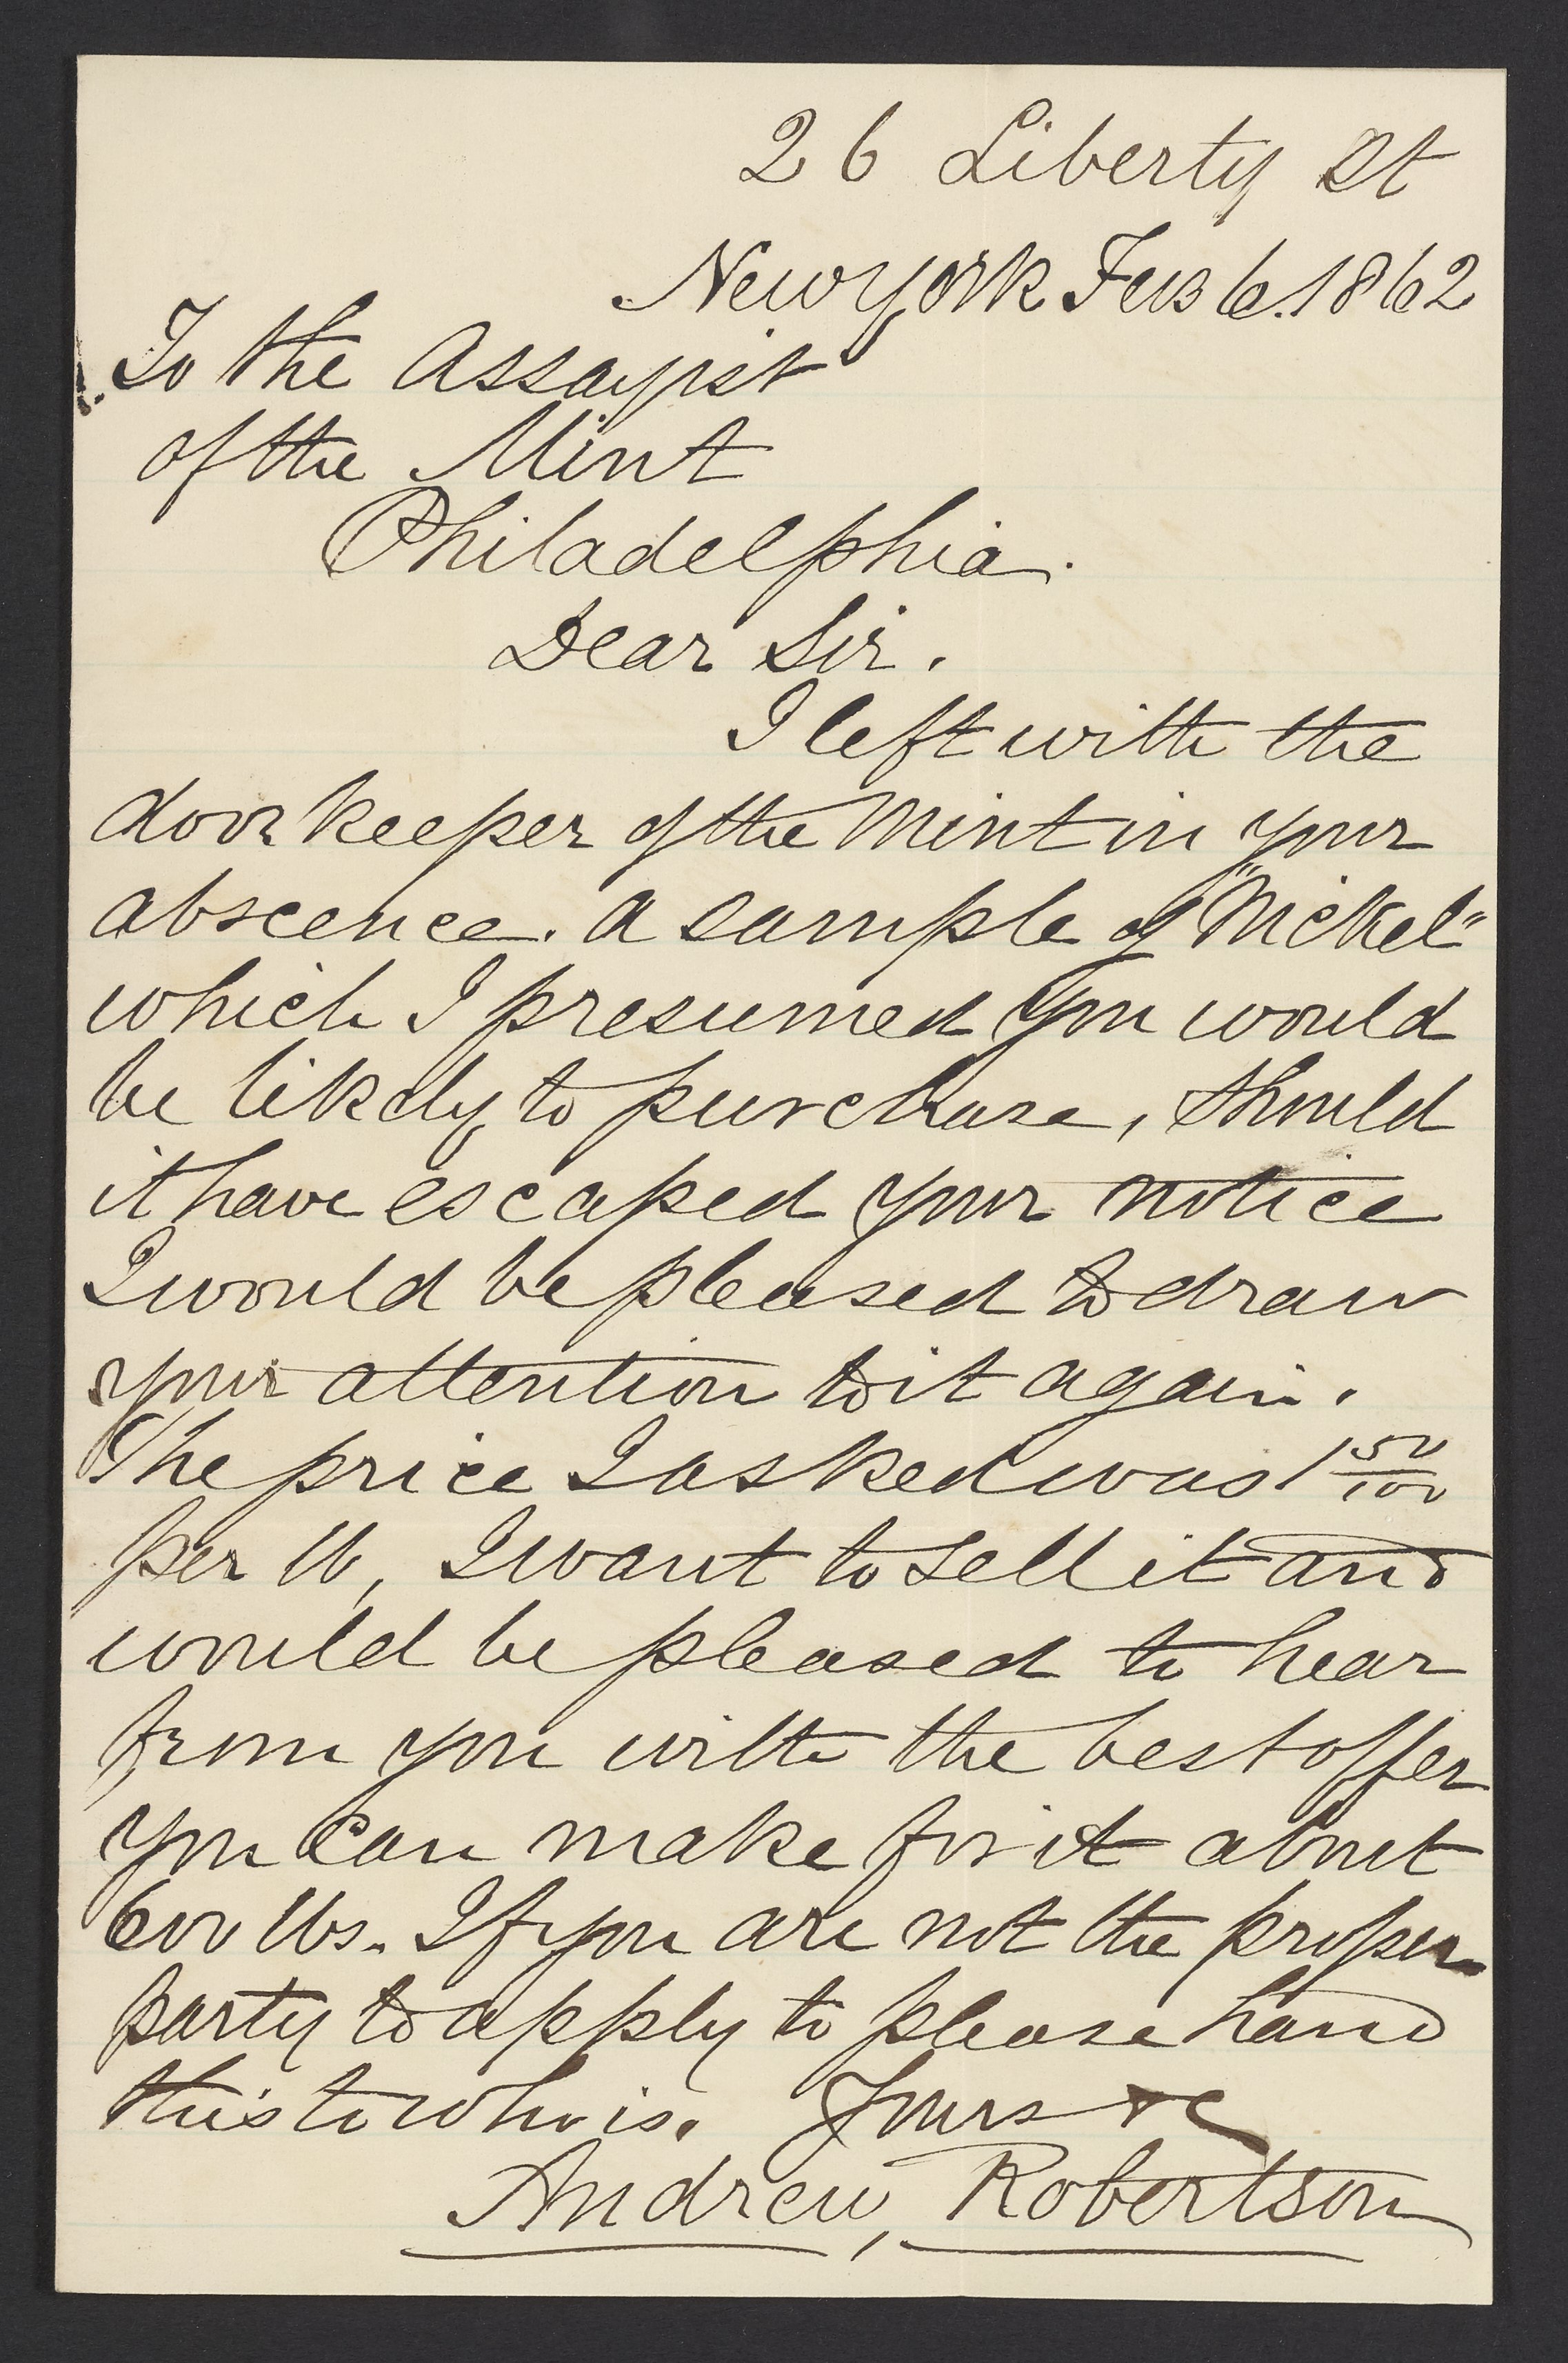 26 Liberty St
New York Feb 6. 1862
To the Assayist
of the Mint
Philadelphia.
Dear Sir.
I left with the
doorkeeper of the Mint in your
abscence. a sample of "Nickel"
which I presumed you would
be likely to purchase, should
it have escaped your notice
I would be pleased to draw
your attention to it again.
The price I asked was 1 50/100
per lb, I want to sell it and
would be pleased to hear
from you with the best offer
you can make for it about
600 lbs. If you are not the proper
party to apply to please hand
this to who is. Yours &c
Andrew, Robertson